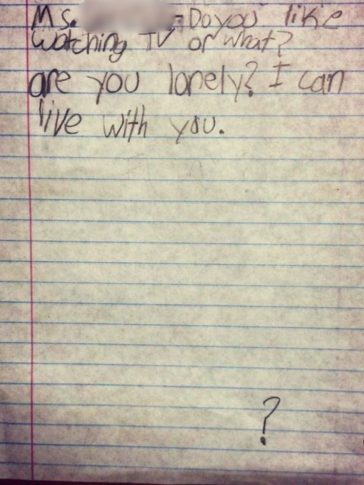 Ms. - Do you like
watching TV or what?
are you lonely? I can
live with you.
?